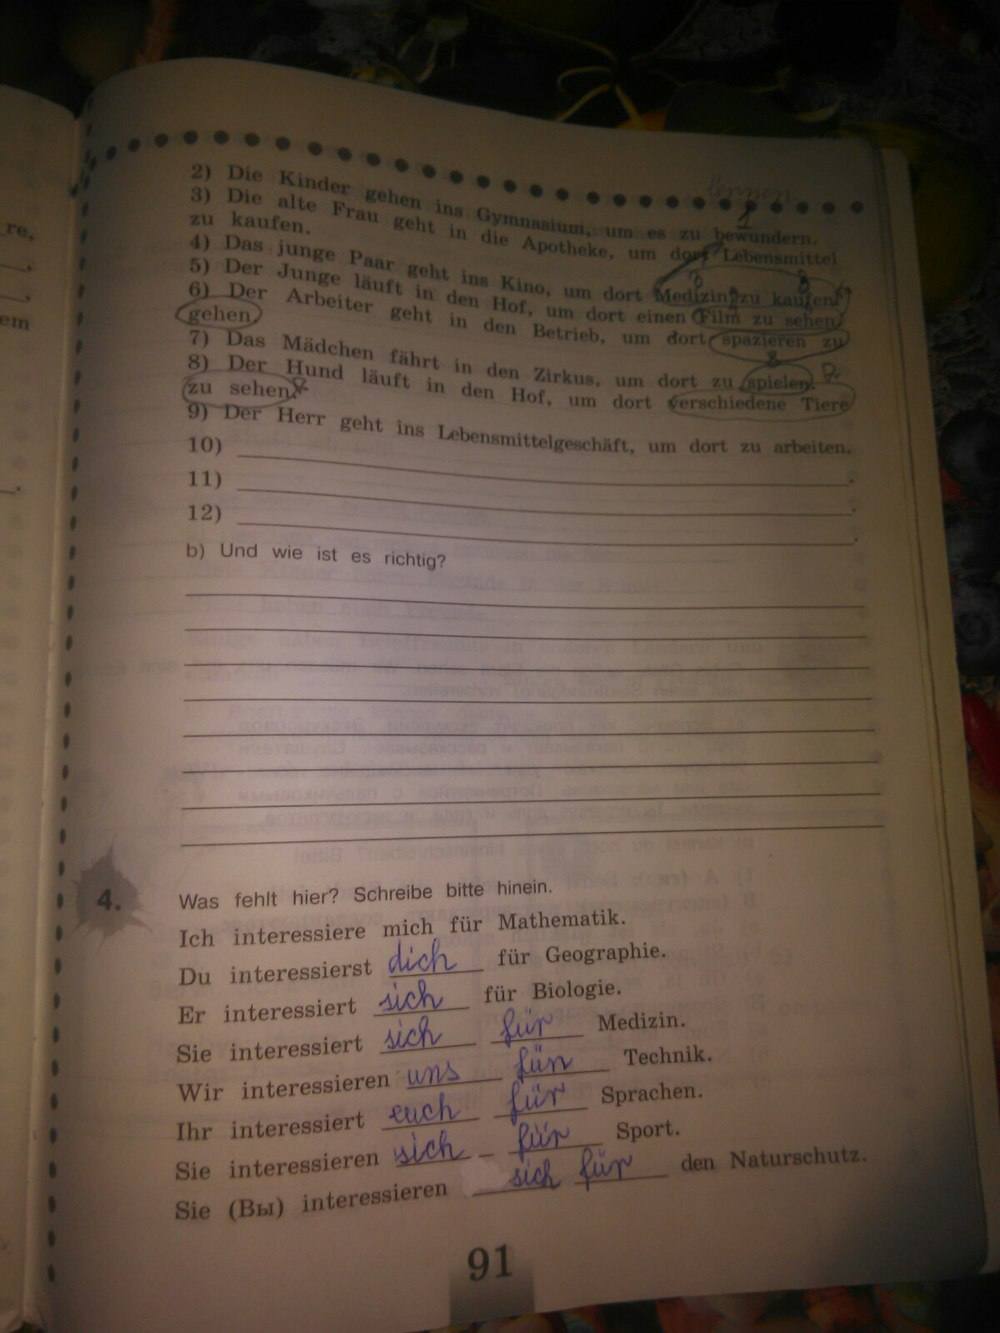 lernen
2) Die Kinder gehen ins Gymnasium, um es zu bewundern.
3) Die alte Frau geht in die Apotheke, um dort Lebensmittel
zu kaufen.
4) Das junge Paar geht ins Kino, um dort Medizin zu kaufen.
5) Der Junge läuft in den Hof, um dort einen Film zu sehen.
6) Der Arbeiter geht in den Betrieb, um dort spazieren zu
gehen.
7) Das Mädchen fährt in den Zirkus, um dort zu spielen.
8) Der Hund läuft in den Hof, um dort verschiedene Tiere
zu sehen.
9) Der Herr geht ins Lebensmittelgeschäft, um dort zu arbeiten.
10)
11)
12)
b) Und wie ist es richtig?
4. Was fehlt hier? Schreibe bitte hinein.
Ich interessiere mich für Mathematik.
Du interessierst dich für Geographie.
Er interessiert sich für Biologie.
Sie interessiert sich für Medizin.
Wir interessieren uns für Technik.
Ihr interessiert euch für Sprachen.
Sie interessieren sich für Sport.
Sie (Вы) interessieren sich für den Naturschutz.
91
re,
em